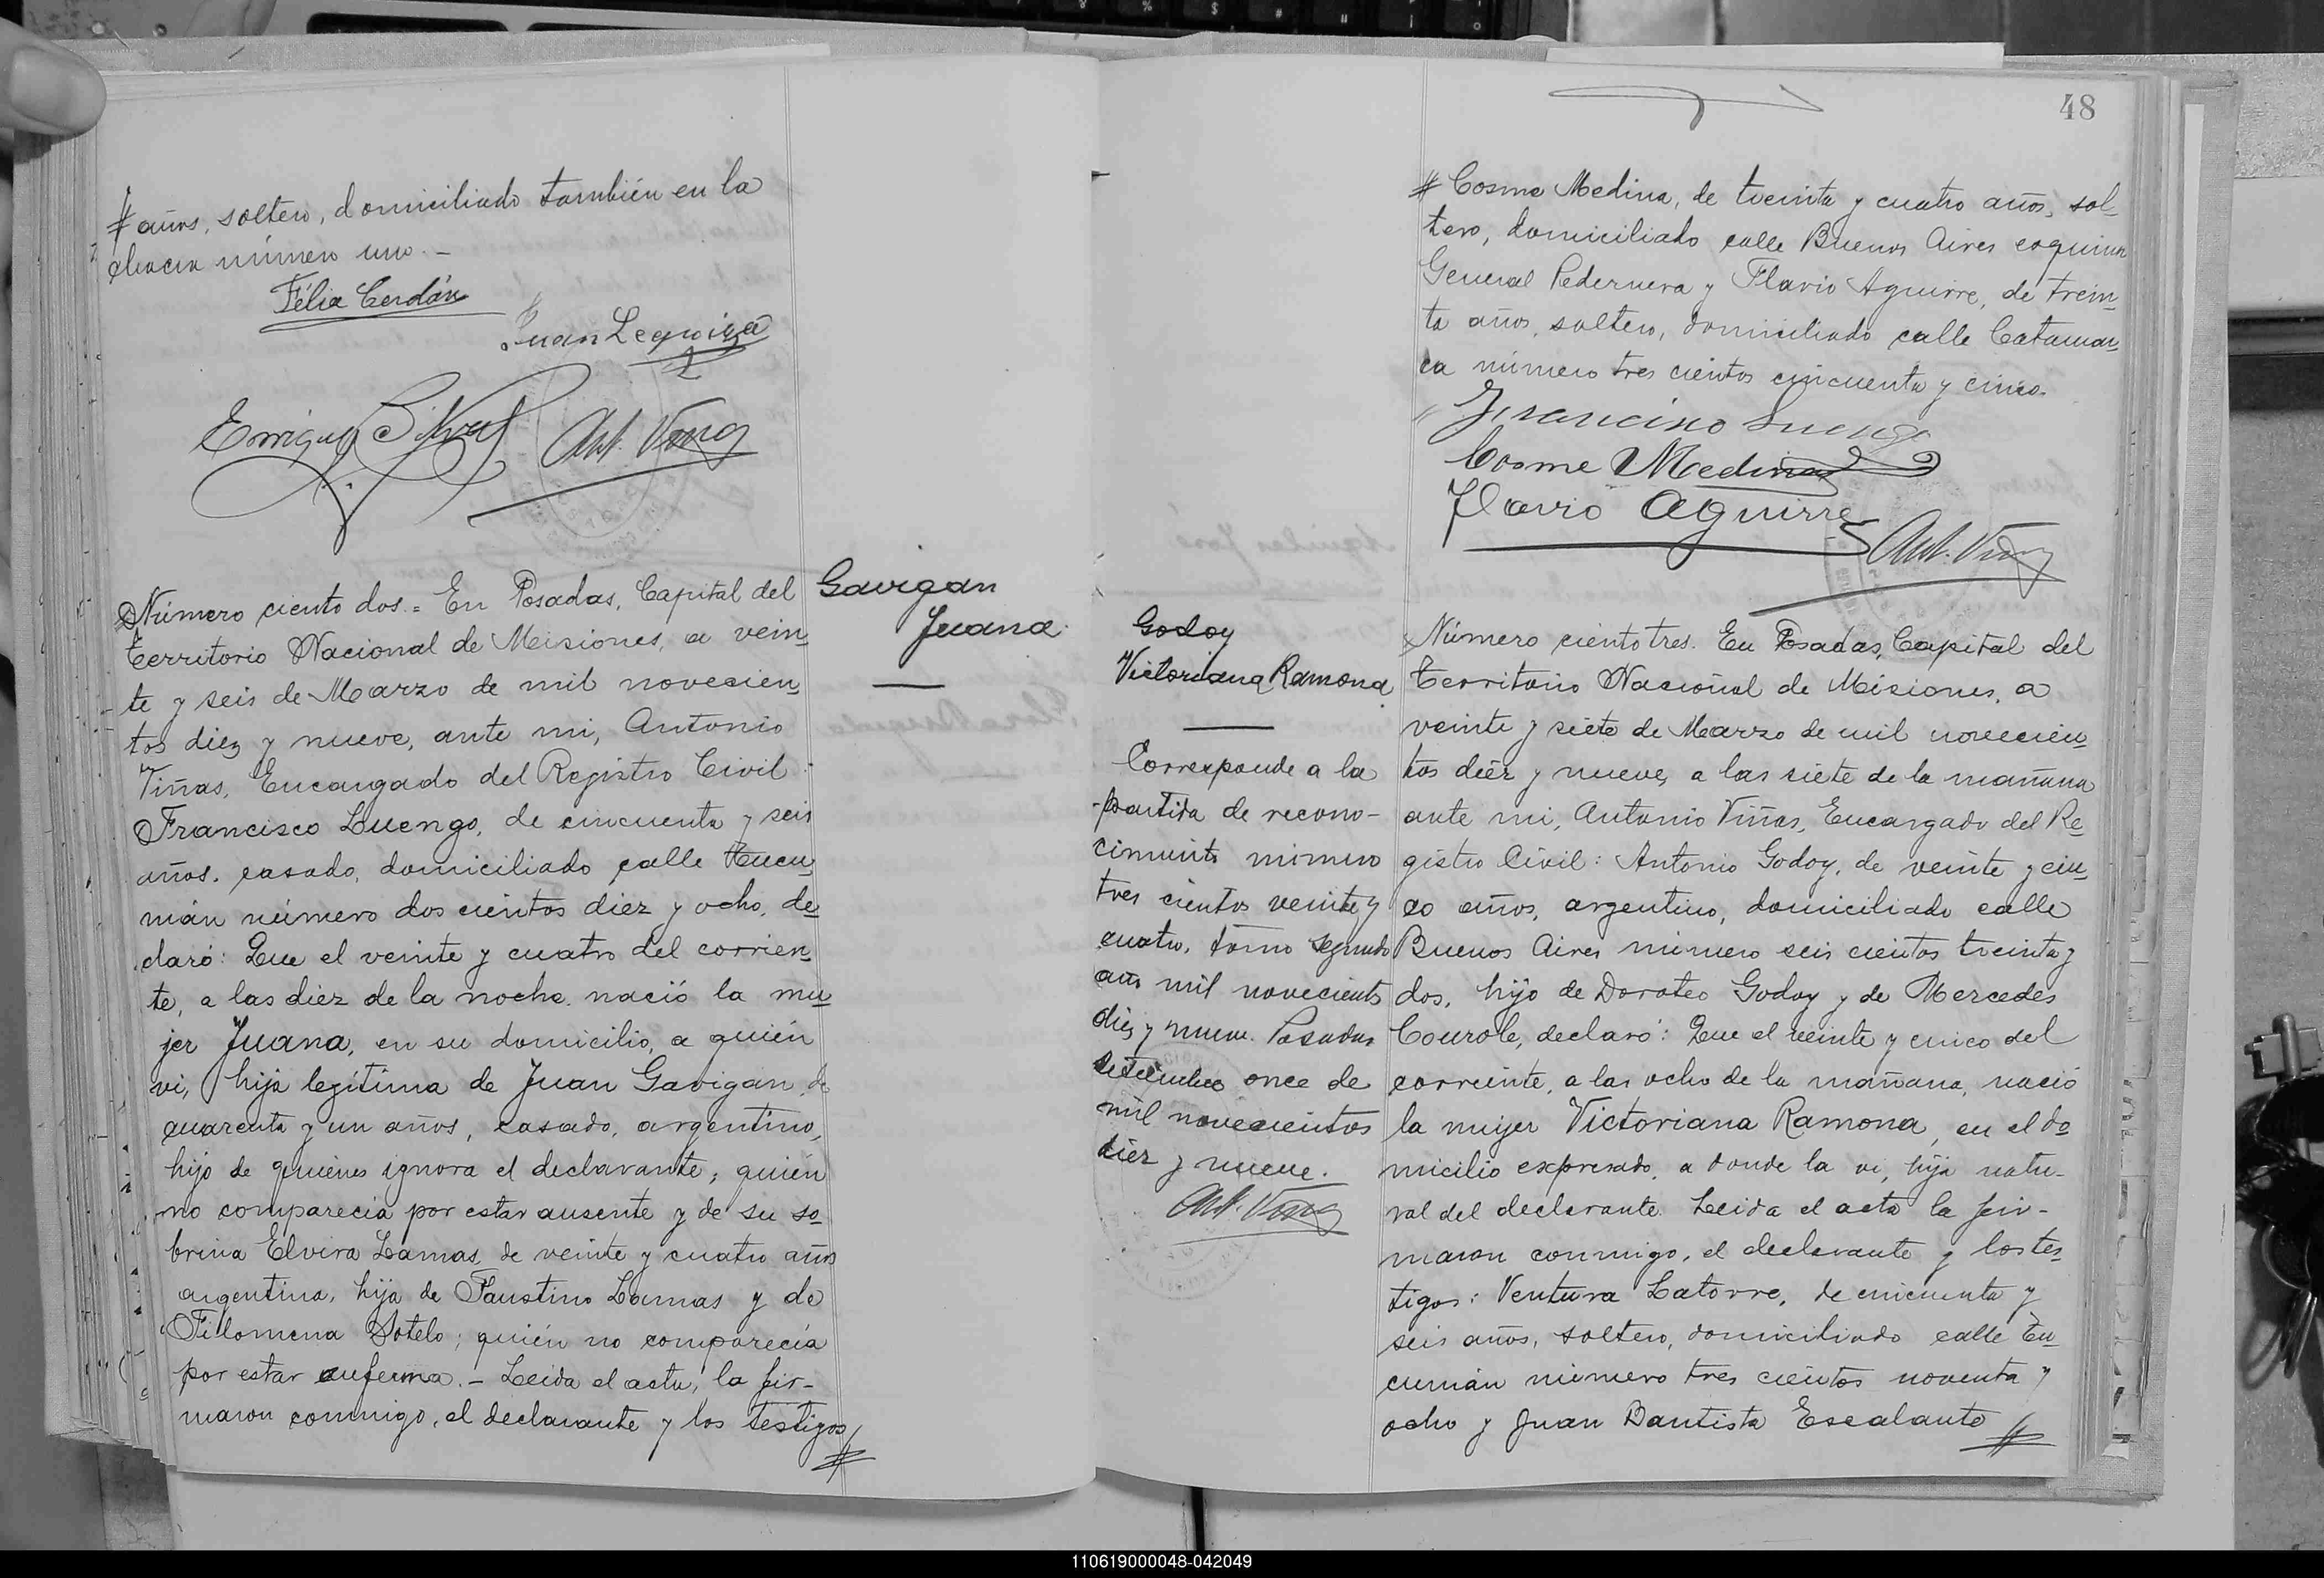 # años, soltero, domiciliado también en la
chacra número uno.-
Félix Cerdán
Juan Leguiza
Enrique
Ant. Viñas
Número ciento dos.= En Posadas, Capital del
Territorio Nacional de Misiones, a vein
te y seis de Marzo de mil novecien
tos diez y nueve, ante mi, Antonio
Viñas, Encargado del Registro Civil:
Francisco Luengo, de cincuenta y seis
años, casado, domiciliado calle Tucu
mán número dos cientos diez y ocho, de
claró: Que el veinte y cuatro del corrien
te, a las diez de la noche, nació la mu
jer Juana, en su domicilio, a quién
vi, hija legítima de Juan Gavigan, de
cuarenta y un años, casado, argentino,
hijo de quiénes ignora el declarante; quién
no comparecía por estar ausente y de su so
brina Elvira Lamas, de veinte y cuatro años
argentina, hija de Faustino Lamas y de
Filomena Sotelo; quién no comparecía
por estar enferma.- Leida el acta, la fir-
maron conmigo, el declarante y los testigos
#
Gavigan
Juana.
48
# Cosme Medina, de treinta y cuatro años, sol
tero, domiciliado calle Buenos Aires esquina
General Pedernera y Flavio Aguirre, de trein
ta años, soltero, domiciliado calle Catamar
ca número tres cientos cincuenta y cinco.
Francisco Luengo
Cosme Medina
Flavio Aguirre
Ant. Viñas
Godoy
Victoriana Ramona
Corresponde a la
partida de recono-
cimiento número
tres cientos veinte y
cuatro, tomo segundo
año mil novecientos
diez y nueve. Posadas
setiembre once de
mil novecientos
diez y nueve.
Ant. Viñas
Número ciento tres. En Posadas, Capital del
Territorio Nacional de Misiones, a
veinte y siete de Marzo de mil novecien
tos diez y nueve, a las siete de la mañana
ante mi, Antonio Viñas, Encargado del Re
gistro Civil: Antonio Godoy, de veinte y cin
co años, argentino, domiciliado calle
Buenos Aires número seis cientos treinta y
dos, hijo de Doroteo Godoy y de Mercedes
declaró: Que el veinte y cinco del
corriente, a las ocho de la mañana, nació
la mujer Victoriana Ramona, en el do
micilio expresado, a donde la vi, hija natu-
ral del declarante. Leida el acta la fir-
maron conmigo, el declarante y los tes
tigos: Ventura Latorre, de cincuenta y
seis años, soltero, domiciliado calle Tu
cumán número tres cientos noventa y
ocho y Juan Bautista Escalante
#
110619000048-042049